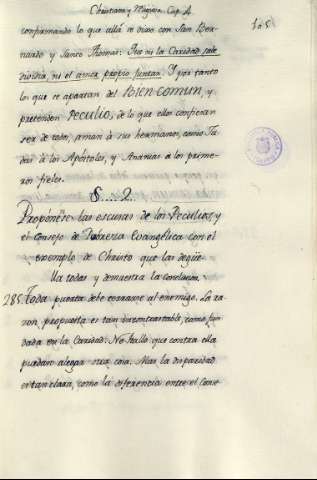 Christiana y Mugrosa. Cap. 4.
105
confirmando lo que allá se dixo con San Ber-
nardo y Santo Thomas: Que ni la Caridad sale
dividia, ni el amor propio juntan. Y por tanto
lo que se apartan del Bien comun, y
pretenden Peculio, de lo que ellos confiesan
ser de todo, aman a sus hermanos, como Ju-
das á los Apóstoles, y Ananias á los prime-
ros fieles.
§. 2.
Propónense las escusas de los Peculios, y
el Consejo de Pobreza Evangélica con el
exemplo de Christo que las degüe-
lla todas y demuestra la Conclusion.
285 Toda puerta debe cerrarse al enemigo. La ra-
zon propuesta es tan incontrastable, como fun-
dada en la Caridad. No hallo que contra ella
puedan alegar otra cosa. Mas la disparidad
es tan clara, como la diferencia entre el Conse-